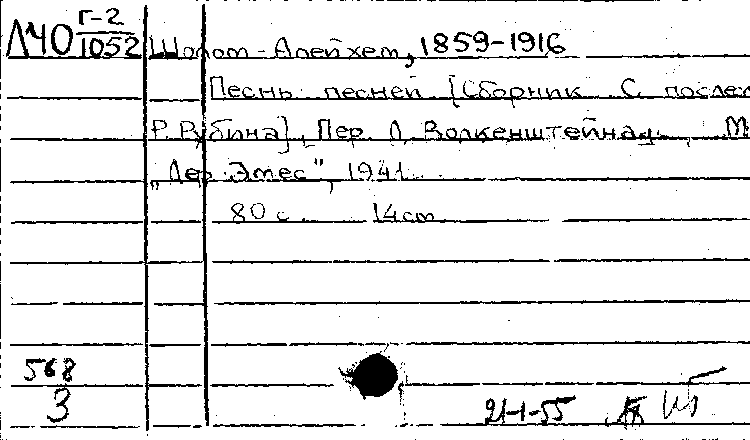 ЛЧО Г-2/1052 Шолом-Алейхем, 1859-1916
Песнь песней [Сборник. С послес
Р. Рубина]. Пер. Д. Волкенштейна. М
"Дер Эмес", 1941.
80 с. 14 cm
568
3
21-1-55